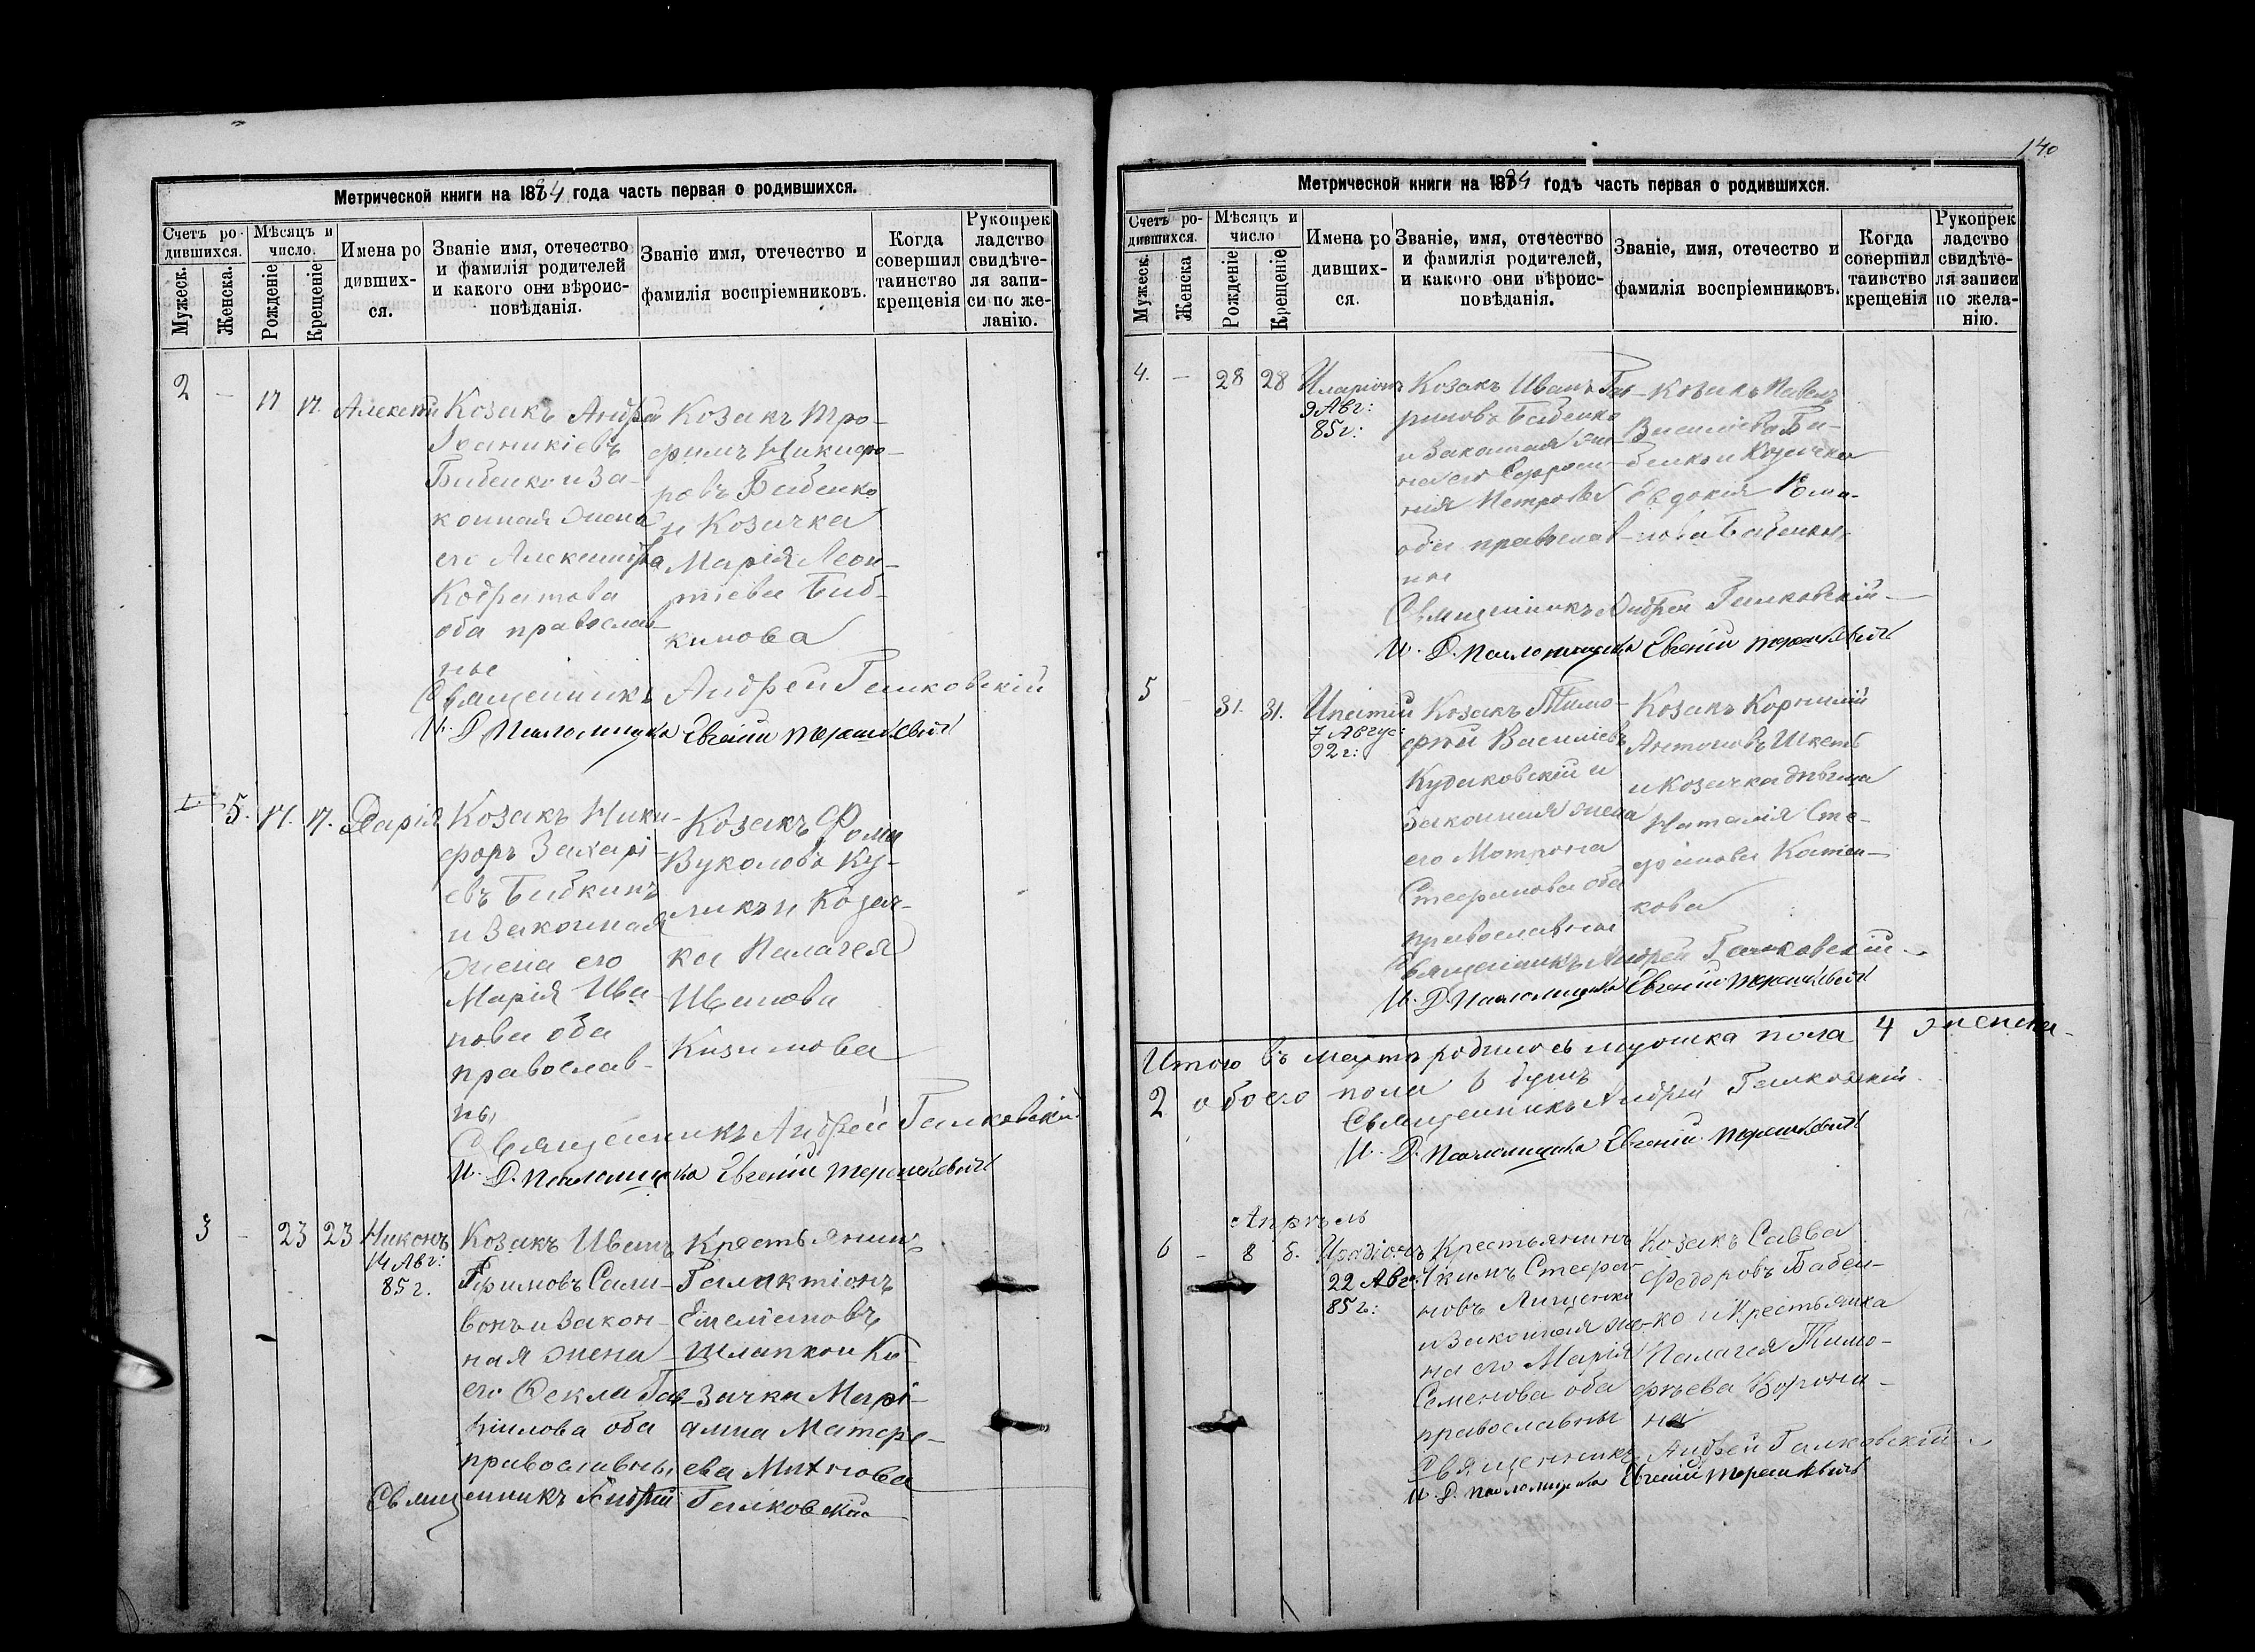 140
Метрической книги на 1884 года часть первая о родившихся.
Счетъ ро-
дившихся.
Мужеск.
Женска.
Мѣсяцъ и
число.
Рожденіе
Крещеніе
Имена ро
дивших-
ся.
Званіе имя, отечество
и фамилія родителей
и какого они вѣроис-
повѣданія.
Званіе имя, отечество и
фамилія воспріемниковъ.
Когда
совершил
таинство
крещенія
Рукоприк
ладство
свидѣте-
ля запи-
си по же-
ланію.
2 - 17 17. Алексѣй
Козакъ Андрей
Іоаникіевъ
Бабенко и за-
конная жена
его Александра
Кодратова
оба православ-
ные
Козакъ Тро-
фимъ Никифо-
ровъ Бабенко
и Козачка
Марія Леон-
тіева Баб-
кинова
Священникъ Андрей Галковскій
И. Д. Псаломщика Евгеній Терешкевичъ
5. 17. 17. Дарія
Козакъ Ники-
форъ Захарі-
евъ Бабкинъ
и законная
жена его
Марія Ива-
нова оба
православ-
ны
Козакъ Фома
Вуколовъ Ку-
ликъ и Козач-
ка Палагея
Иванова
Казимова
Священникъ Андрей Галковскій
И. Д. Псаломщика Евгеній Терешкевичъ
3 - 23 23 Никонъ
14 Авг:
85 г.
Козакъ Иванъ
Сали-
вонъ и закон-
ная жена
его Фекла Гав-
ріилова оба
православны
Крестьянинъ
Галактіонъ
Емеліановъ
Шлапкои Ко-
зачка Марі-
амна Матѳе-
ева
Священникъ Андрей Галковскій
Метрической книги на 1884 годъ часть первая о родившихся.
Счетъ ро-
дившихся.
Мужеск.
Женска
Мѣсяцъ и
число
Рожденіе
Крещеніе
Имена ро
дивших-
ся.
Званіе, имя, отечество
и фамилія родителей,
и какого они вѣроис-
повѣданія.
Званіе, имя, отечество и
фамилія воспріемниковъ.
Когда
совершил
таинство
крещенія
Рукопрек
ладство
свидѣте-
ля записи
по жела-
нію.
4. - 28 28 Иларіонъ
9 Авг:
85 г:
Козакъ Иванъ
Бабенко
и законная же-
на его Евфроси-
нія Петрова
оба православ-
ные
Козакъ Павелъ
Василіевъ Ба-
бенко и Козачка
Евдокія Рома-
нова Бабенкова
Священникъ Андрей Галковскій
И. Д. Псаломщика Евгеній Терешкевичъ
5 31. 31. Ипатій
7 Авгус:
92 г:
Козакъ Тимо-
фей Василіевъ
Кудаковскій и
законная жена
его Мотрона
Стефанова оба
православные
Козакъ Корнилій
Антоновъ Шкетъ
и козачка дѣвица
Наталія Сте-
фанова Катен-
кова
Священникъ Андрей Галковскій
И. Д. Псаломщика Евгеній Терешкевичъ
Итого въ мартѣ родилось мужска пола 4 женска-
2 обоего пола 6 душъ
Священникъ Андрей Галковскій
И. Д. Псаломщика Евгеній Терешкевичъ
Апрѣль
6 - 8 8. Иродіонъ
22 Авг:
85 г:
Крестьянинъ
Стефа-
новъ Лищенко
и законная же-
на его Марія
Семенова оба
православны
Козакъ Савва
Федоровъ Бабен-
ко и Крестьянка
Палагея Тимо-
феева Ворони-
на
Священникъ Андрей Галковскій
И. Д. Псаломщика Евгеній Терешкевичъ